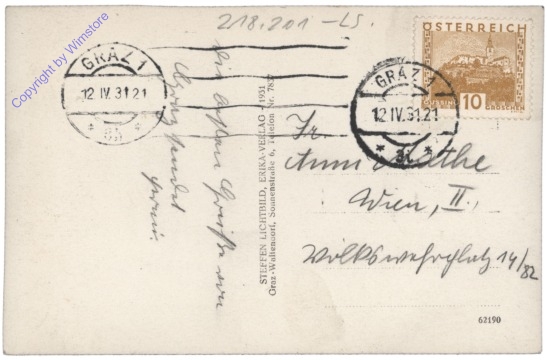 218.201 -LS.
Copyright by Wimstore
GRAZ 1
12.IV.31.21
* 8h *
GRAZ 1
12.IV.31.21
* 8i *
ÖSTERREICH
GÜSSING
10
GROSCHEN
Die besten Grüße aus
Graz sendet
STEFFEN LICHTBILD, ERIKA-VERLAG 1931
Graz-Waltendorf, Sonnenstraße 6, Telefon Nr.
Fr.
Anni
Wien, II.,
Volkswehrplatz 14/82
62190